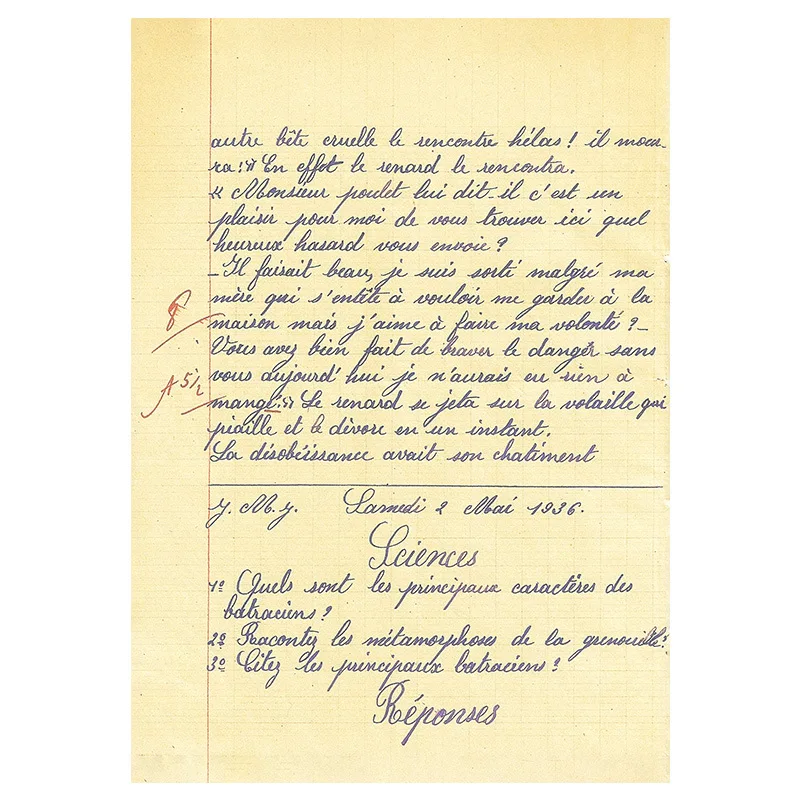 autre bête cruelle le rencontre hélas ! il mour-
ra !» En effet le renard le rencontra.
« Monsieur poulet lui dit-il c'est un
plaisir pour moi de vous trouver ici quel
heureux hasard vous envoie ?
– Il faisait beau, je suis sorti malgré ma
mère qui s'entête à vouloir me garder à la
maison mais j'aime à faire ma volonté ? –
Vous avez bien fait de braver le danger sans
vous aujourd'hui je n'aurais eu rien à
mangé.» Le renard se jeta sur la volaille qui
piaille et le dévore en un instant.
La désobéissance avait son chatiment
8
A 5 1/2
J. M. J. Samedi 2 Mai 1936.
Sciences
1º Quels sont les principaux caractères des
batraciens ?
2º Racontez les métamorphoses de la grenouille ?
3º Citez les principaux batraciens ?
Réponses